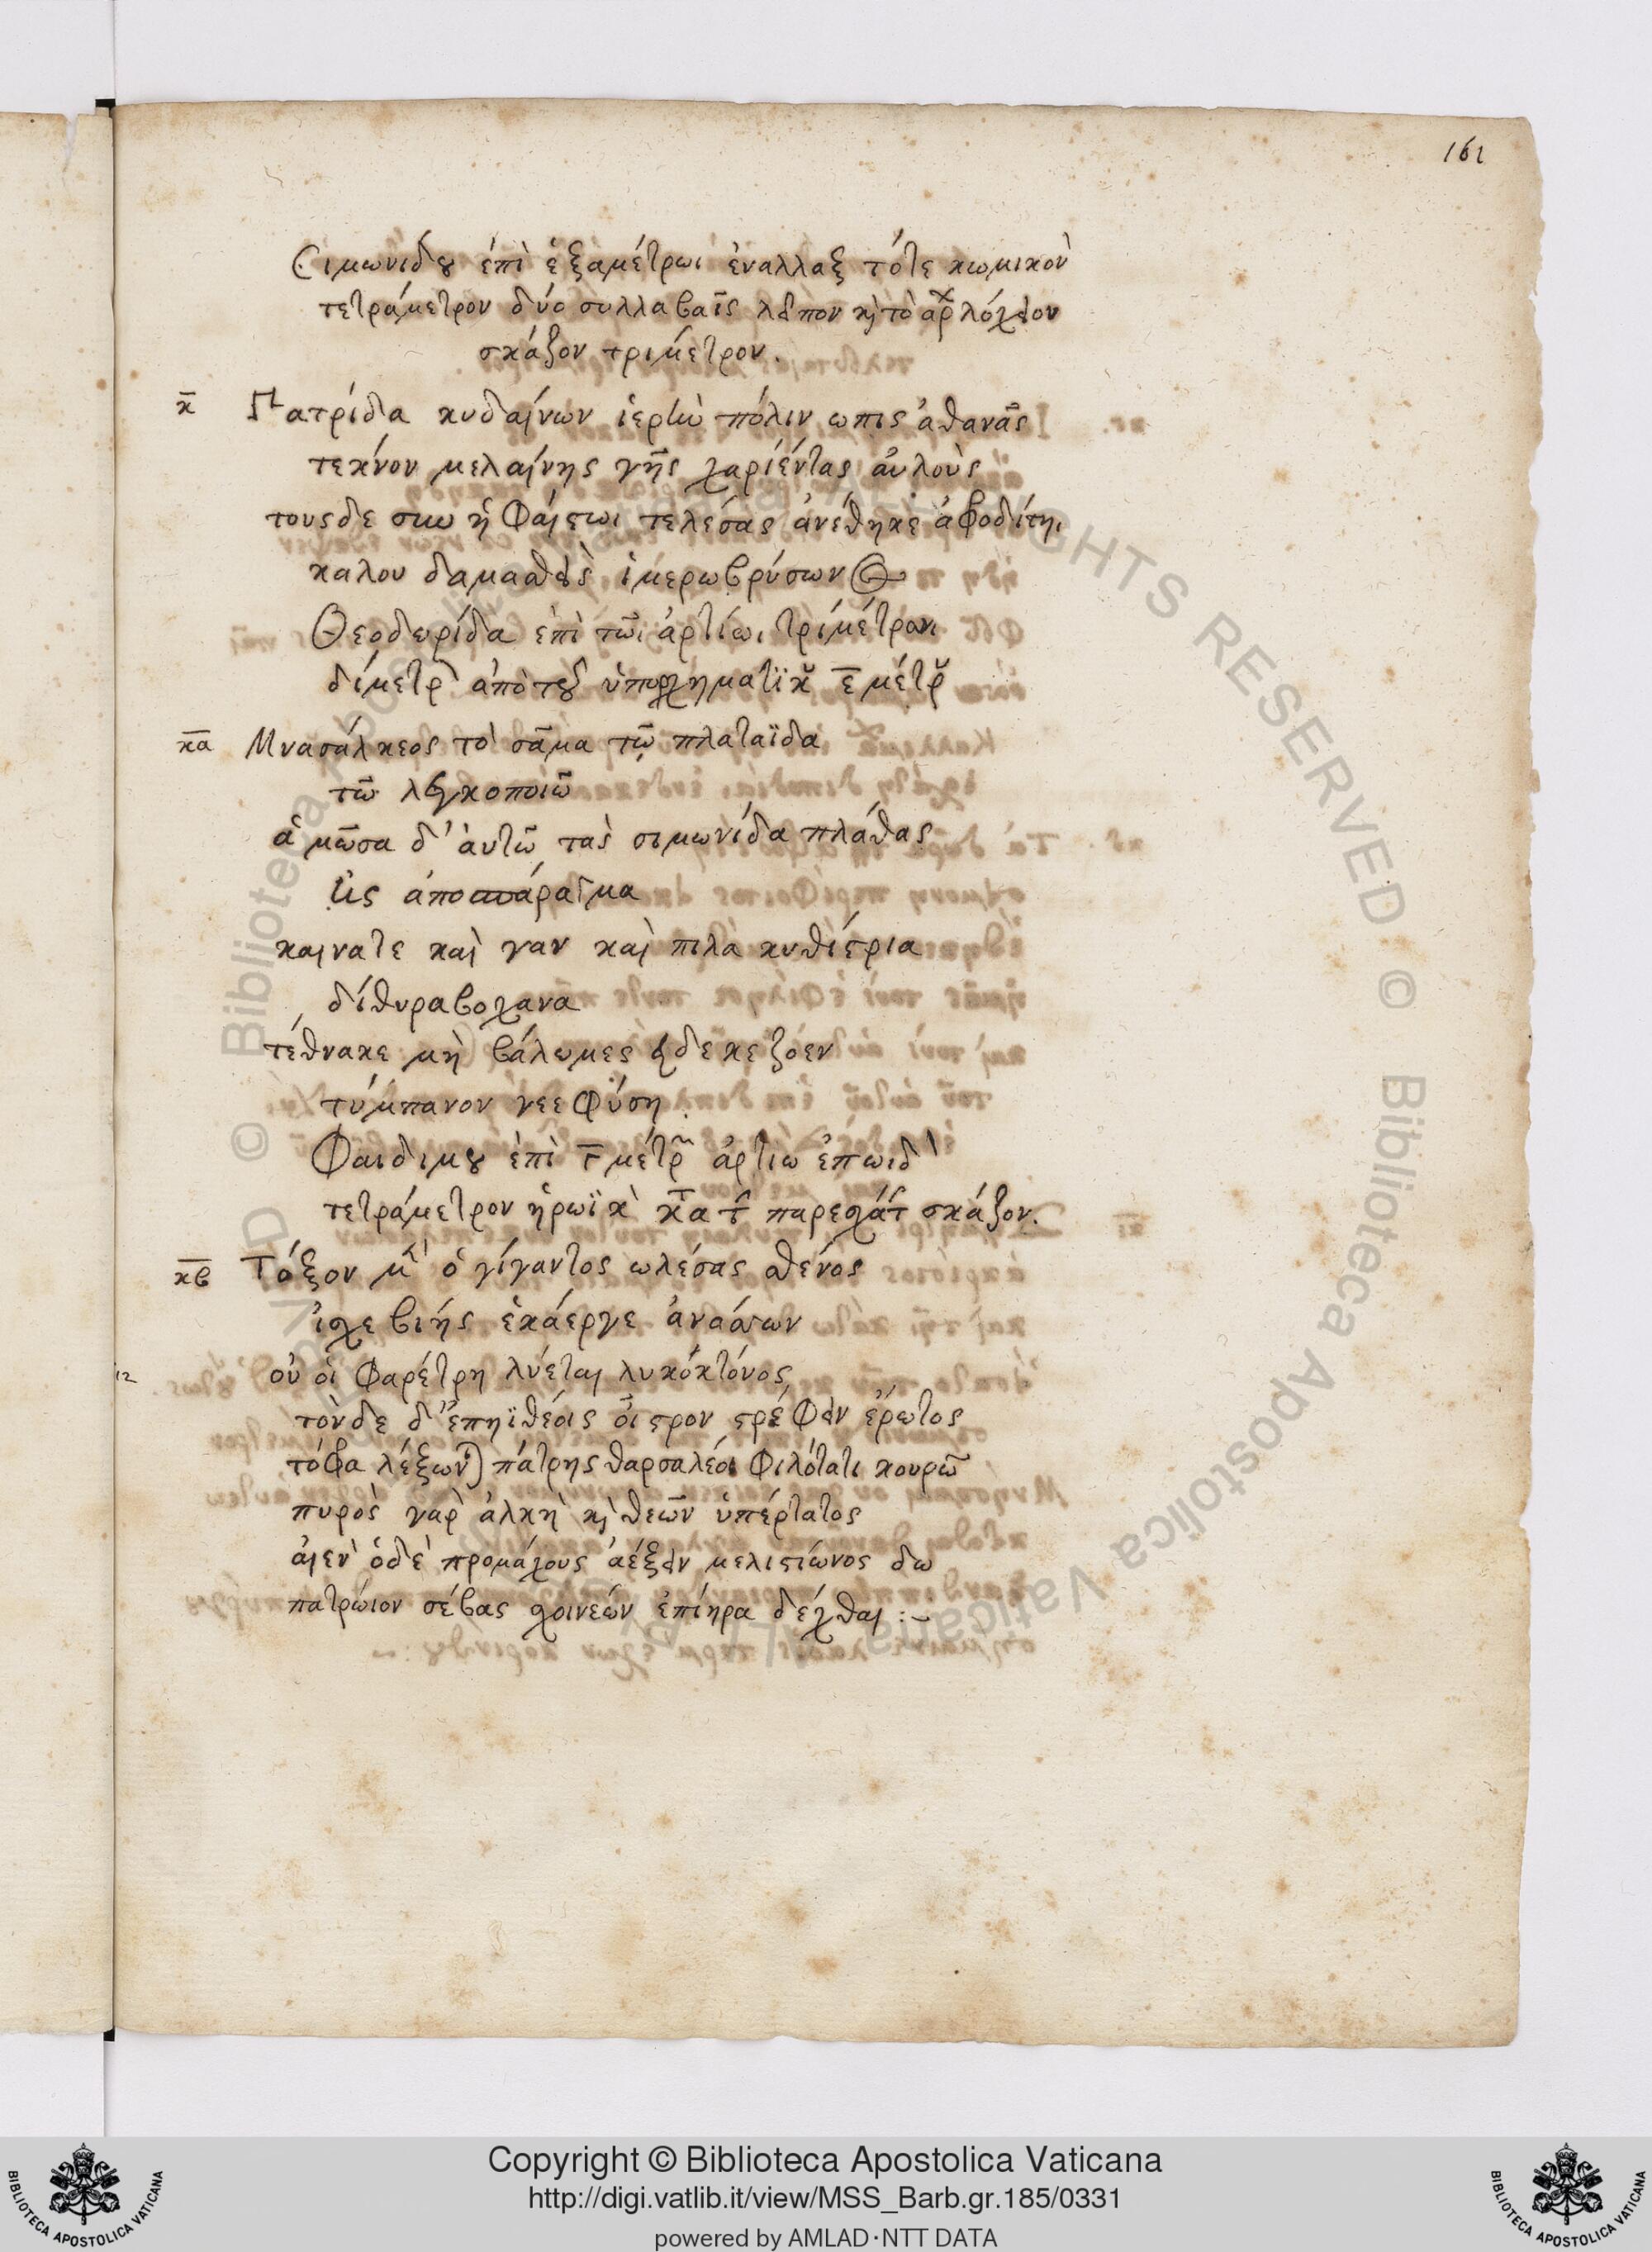 161
Σιμωνίδου ἐπὶ ἑξαμέτρωι ἐναλλαξ τότε κωμικὸν
τετράμετρον δύο συλλαβαῖς λεῖπον κ̀ τὸ ἀρχλόχειον
σκάζον τρίμετρον.
κ̅ Πατρίδα κυδαίνων ἱερὴν πόλιν ωπις ἀθανᾶς
τεκνον μελαίνης γῆς χαρίεντας αὐλοὺς
τουςδε συν ἡφαιστωι τελέσας ἀνέθηκε ἀφροδίτηι
καλου δαμασθεὶς ἱμερω βρύσωνΘ
Θεοδωρίδα ἐπὶ τῶι ἀρτίωι τρίμέτρωι
δίμετρ ἀπὸ τοῦ ὑπορχηματϊκ ε̅ μέτρ
κ̅α̅ Μνασάλκεος τὸ σᾶμα τῶ πλαταϊδα
τῶ λεγκοποιῶ
ἁ μῶσα δ' ἀυτῶ τας σιμωνίδα πλάθας
ἦς ἀποσπάραγμα
καινατε καὶ γαν καὶ πιλα κυθίστρια
δίθυραβοχανα
τέθνακε μὴ βάλωμες ειδε κε ζοεν
τύμπανον γεεφύση.
Φαιδιμου ἐπὶ γ̅ μέτρ ἀρτιω ἐπωιδ
τετράμετρον ἡρωϊκ κ̅α τ παρεσχάτ σκάζον.
κ̅β̅ Τόξον μ ὁ γίγαντος ωλέσας σθένος
ἰσχε βιής ἑκάεργε ἀνάσσων
12
οὐ οἱ φαρέτρη λύεται λυκόκτόνος
τὸνδε δ' ἔπηϊθέοις οἷστρον στρέφειν ἐρωτος
τόφρα λέξων) πάτρης θαρσαλέοι φιλότατι κουρῶ
πυρὸς γαρ ἀλκὴ κ̀ θεῶν ὑπέρτατος
αἰεν ὁδὲ προμάχους ἀέξειν μελιστίωνος δω
πατρώιον σέβας σχοινεών ἐπίηρα δέχθαι :~
Copyright © Biblioteca Apostolica Vaticana
http://digi.vatlib.it/view/MSS_Barb.gr.185/0331
powered by AMLAD·NTT DATA
BIBLIOTECA APOSTOLICA VATICANA
BIBLIOTECA APOSTOLICA VATICANA